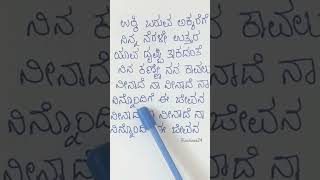 ಉಕ್ಕಿ ಬರುವ ಅಕ್ಕರೆಗೆ
ನಿನ್ನ ನೆರಳೇ ಉತ್ತರ
ಯಾವ ದೃಷ್ಟಿ ತಾಕದಂತೆ
ನಿನ ಕಣ್ಣೇ ನನ ಕಾವಲು
ನೀನಾದೆ ನಾ ನೀನಾದೆ ನಾ
ನಿನ್ನೊಂದಿಗೆ ಈ ಜೀವನ
ನೀನಾದೆ ನಾ ನೀನಾದೆ ನಾ
ನಿನ್ನೊಂದಿಗೆ ಈ ಜೀವನ